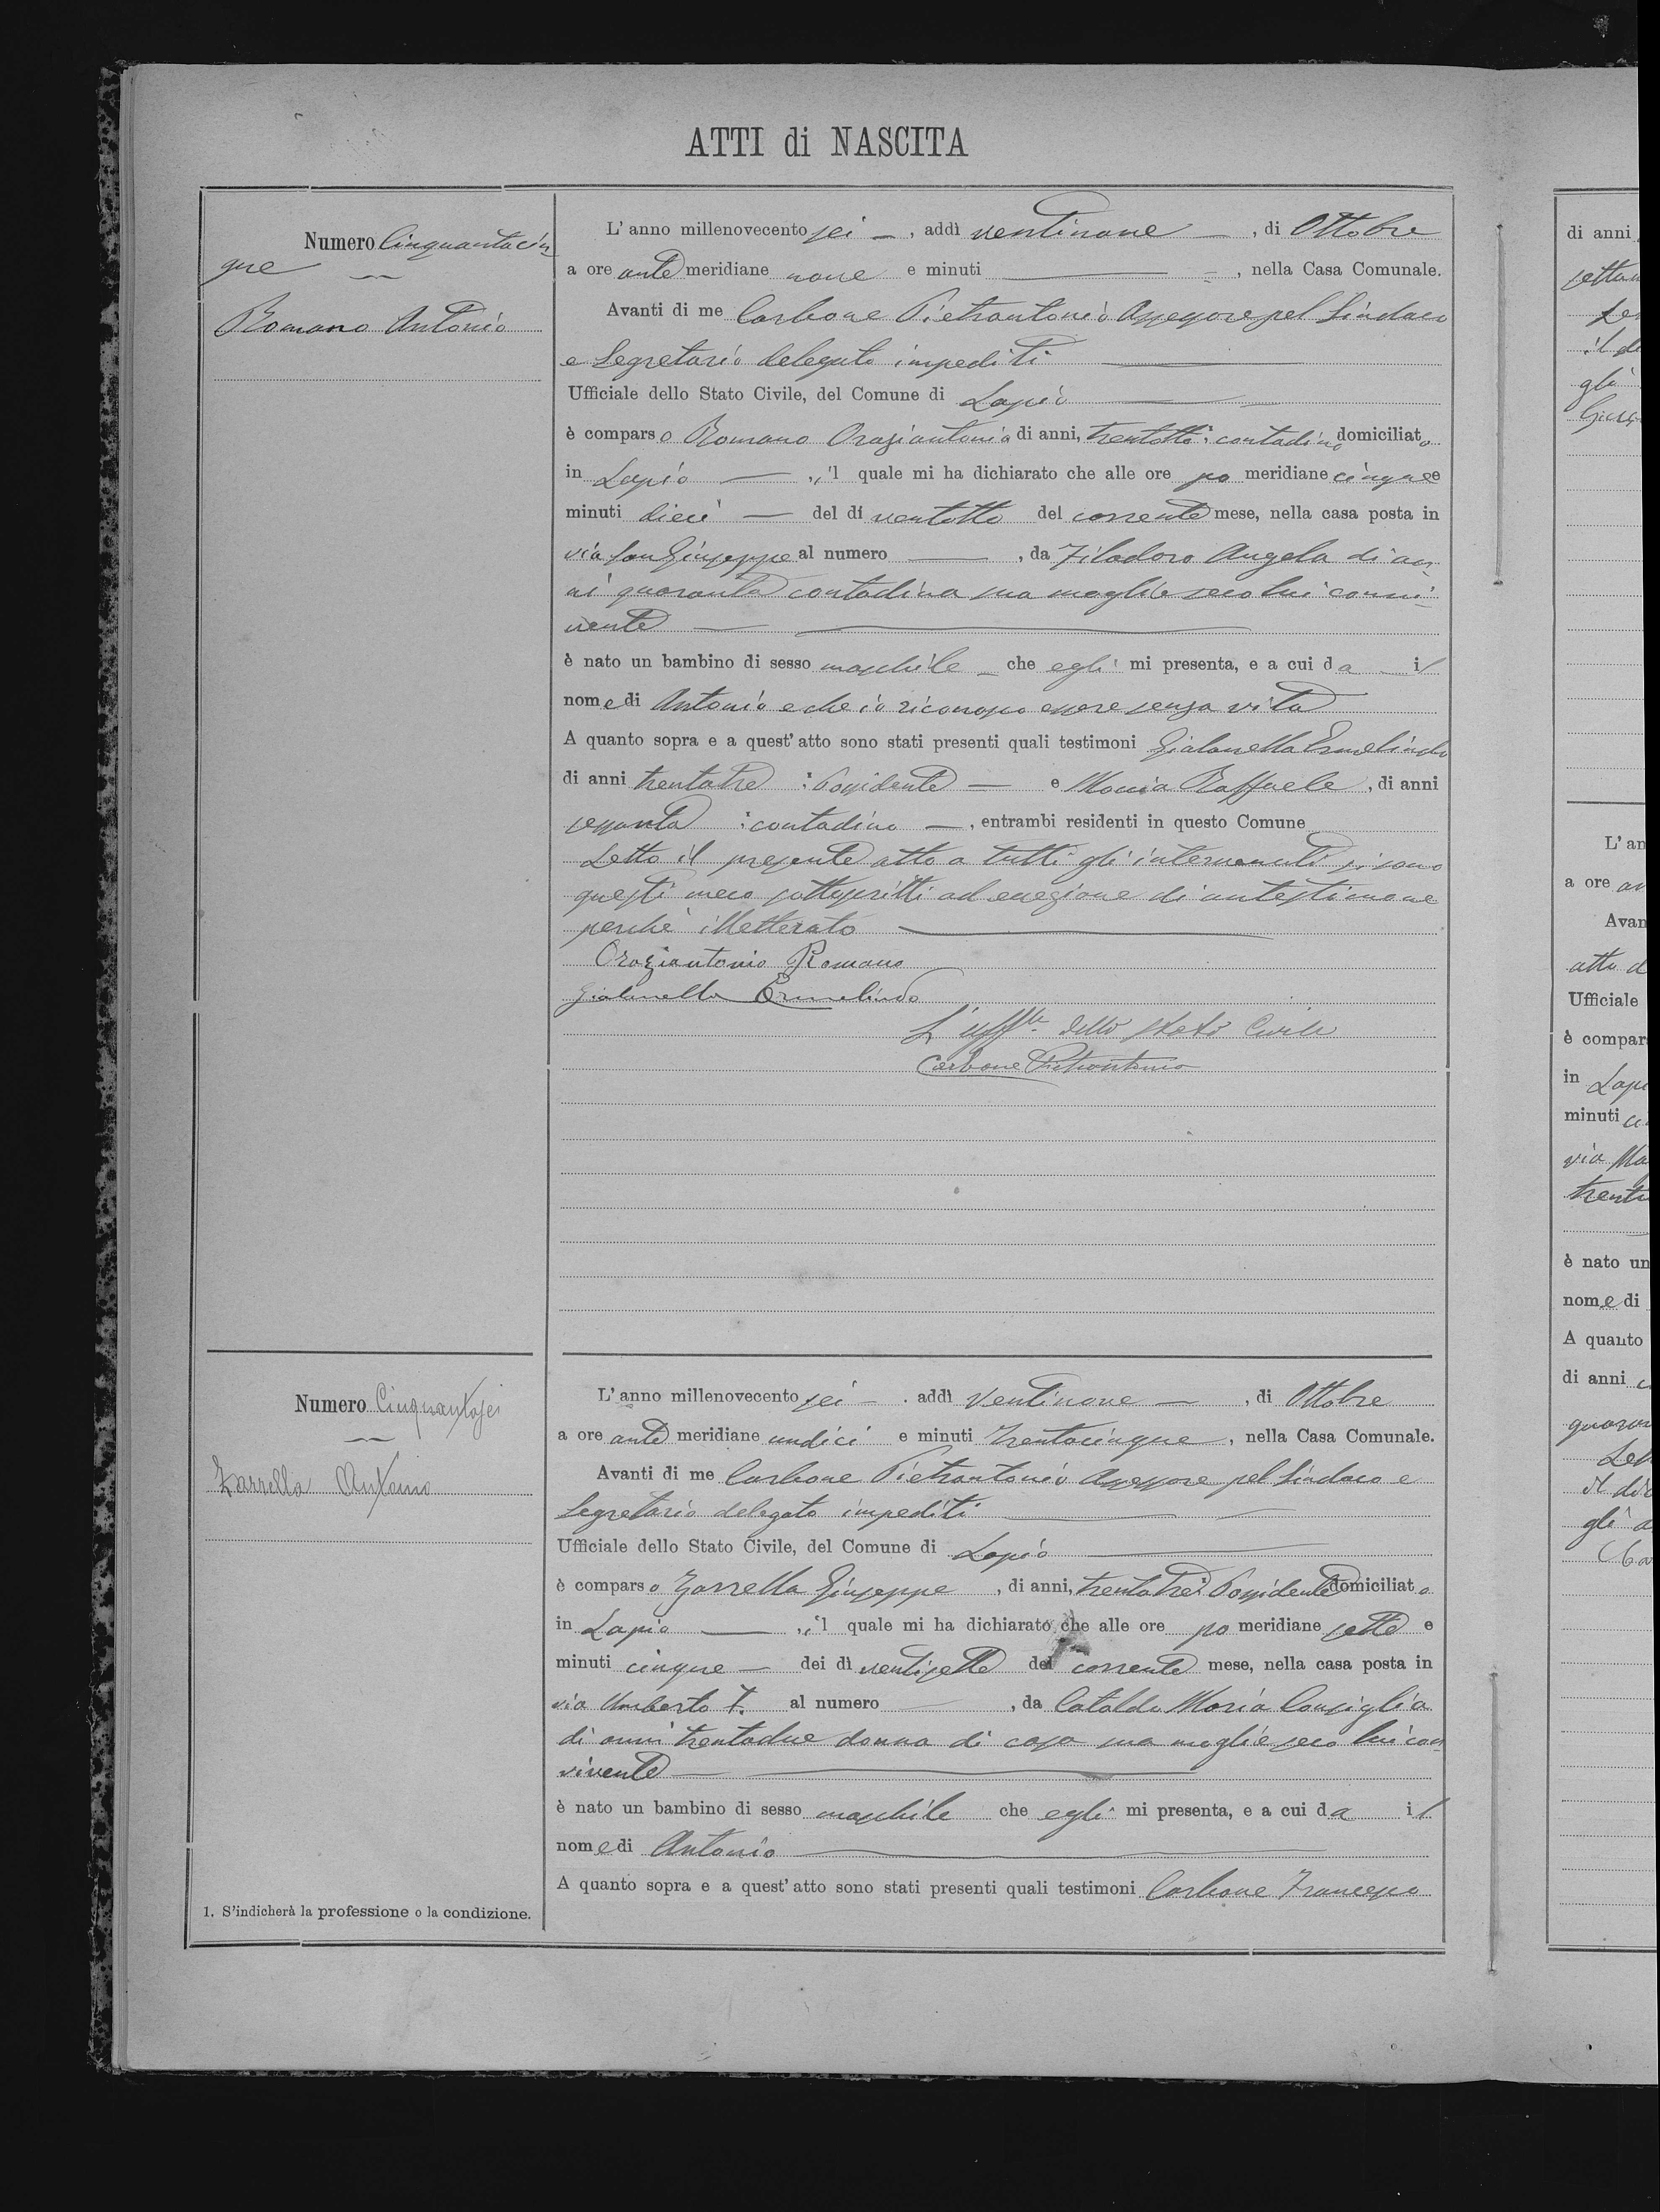 ATTI di NASCITA
Numero Cinquantacin
que
Romano Antonio
L'anno millenovecento sei, addì ventinove, di Ottobre
a ore ante meridiane nove e minuti , nella Casa Comunale.
Avanti di me Carbone Pietrantonio Assessore pel Sindaco
e Segretario delegato impediti
Ufficiale dello Stato Civile, del Comune di Lapio
è comparso Romano Oraziantonio di anni, trentotto; contadino domiciliato
in Lapio, il quale mi ha dichiarato che alle ore po meridiane cinque e
minuti dieci del dì ventotto del corrente mese, nella casa posta in
via San Giuseppe al numero , da Filadoro Angela di an
ni quaranta contadina sua moglie seco lui convi
vente
è nato un bambino di sesso maschile che egli mi presenta, e a cui da il
nome di Antonio e che io riconosco essere senza vita
A quanto sopra e a quest'atto sono stati presenti quali testimoni Gialanella Ermelindo
di anni trentatre; Possidente e Raffaele, di anni
sessanta; contadino, entrambi residenti in questo Comune
Letto il presente atto a tutti gli intervenuti si sono
questi meco sottoscritti ad eccezione di un testimone
perchè illetterato
Oraziantonio Romano
Gialanella Ermelindo
L'uff.le dello Stato Civile
Carbone Pietrantonio
Numero Cinquantasei
Zarrella Antonio
L'anno millenovecento sei. addì ventinove, di Ottobre
a ore ante meridiane undici e minuti trentacinque, nella Casa Comunale.
Avanti di me Carbone Pietrantonio Assessore pel Sindaco e
Segretario delegato impediti
Ufficiale dello Stato Civile, del Comune di Lapio
è comparso Zarrella Giuseppe, di anni, trentatre; Possidente domiciliato
in Lapio, il quale mi ha dichiarato che alle ore po meridiane sette e
minuti cinque dei dì ventisette del corrente mese, nella casa posta in
via Umberto I. al numero , da Cataldo Maria Consiglia
di anni trentadue donna di casa sua moglie seco lui con
vivente
è nato un bambino di sesso maschile che egli mi presenta, e a cui da il
nome di Antonio
A quanto sopra e a quest'atto sono stati presenti quali testimoni Carbone Francesco
1. S'indicherà la professione o la condizione.
di anni
gli
L'an
a ore
Avan
Ufficiale
è compar
in
minuti
via
è nato un
nome di
A quanto
di anni
gli